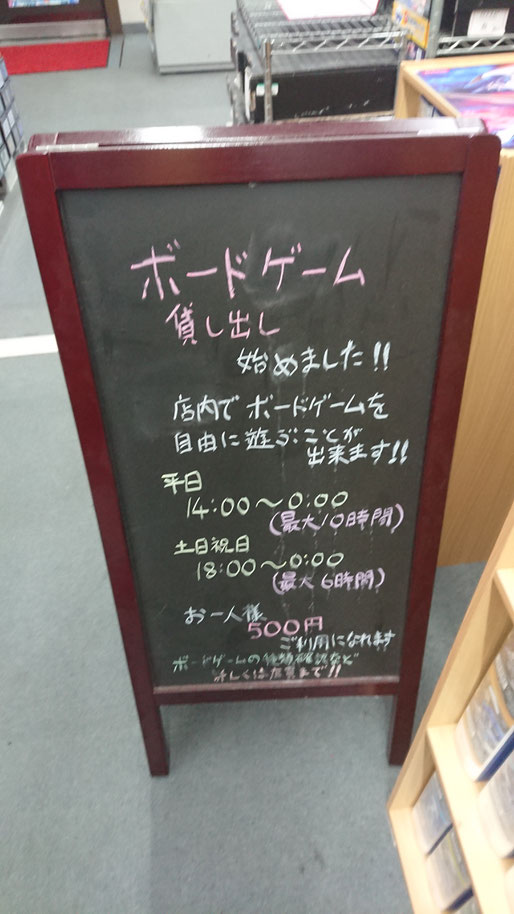 ボードゲーム
貸し出し
始めました!!
店内でボードゲームを
自由に遊ぶことが
出来ます!!
平日
14:00〜0:00
(最大10時間)
土日祝日
18:00〜0:00
(最大6時間)
お一人様
500円
ご利用になれます
ボードゲームの種類確認など
詳しくは店員まで!!